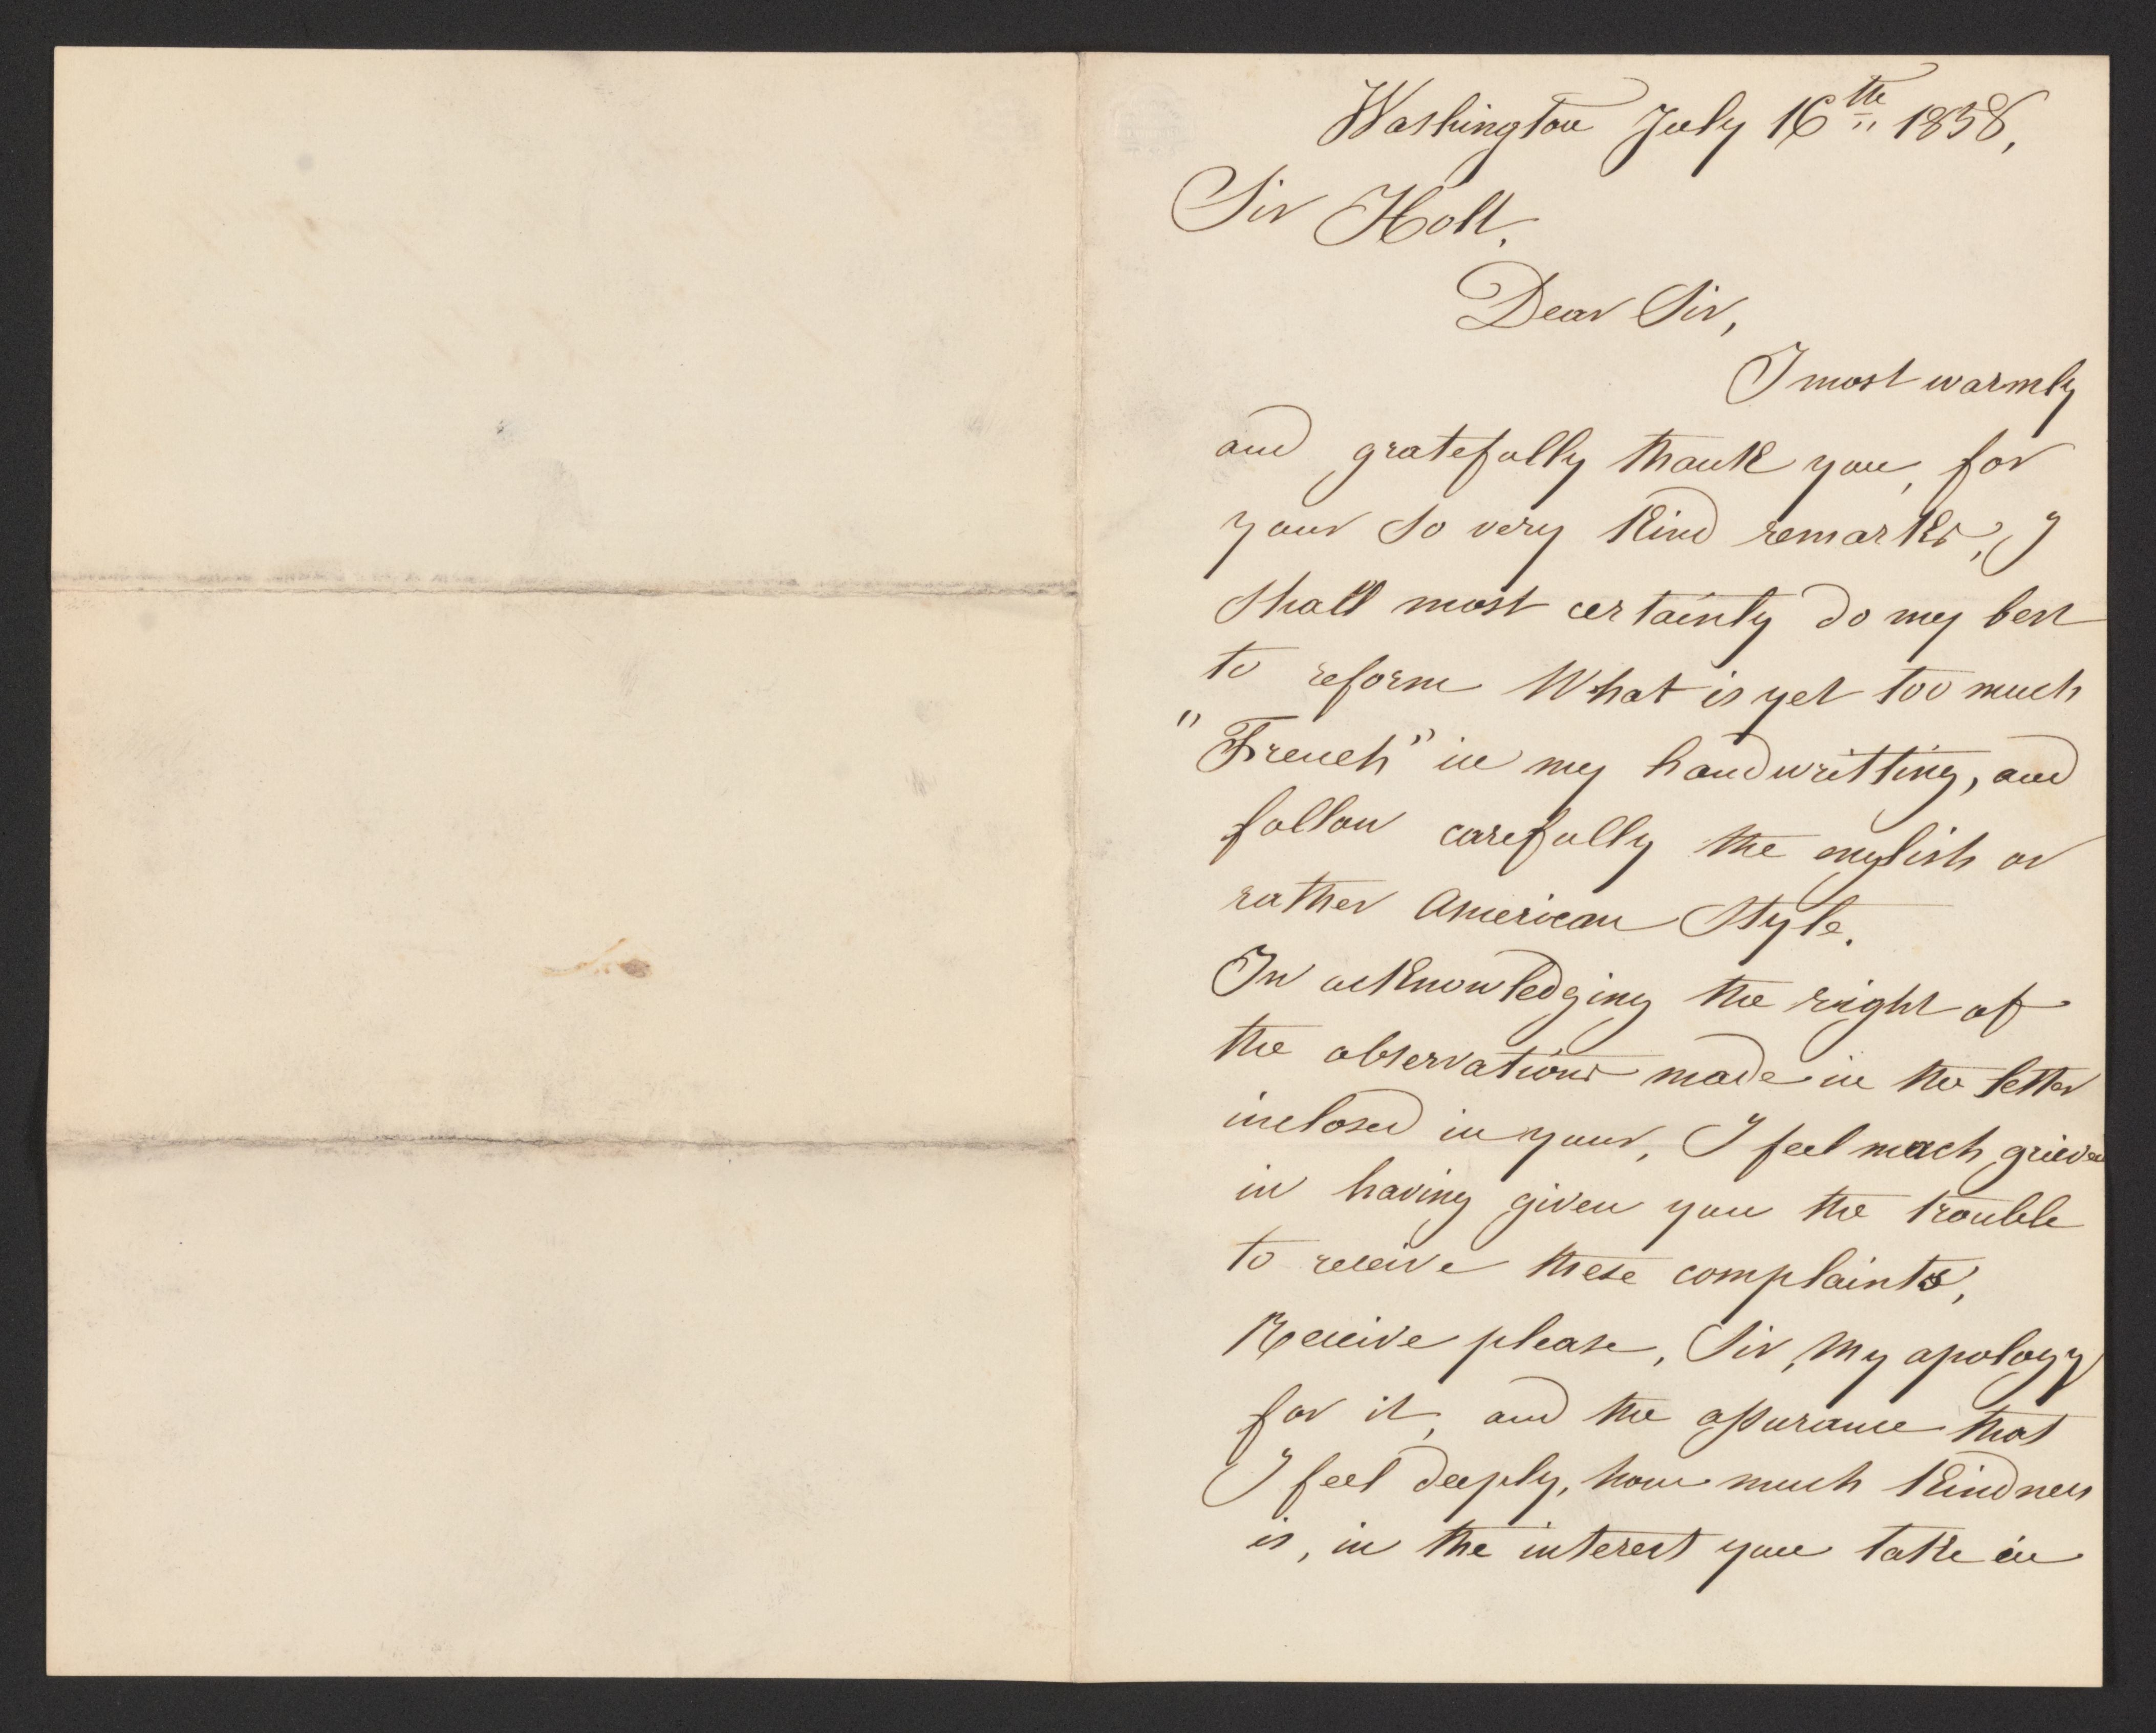 Washington July 16th 1858,
Sir Holt.
Dear Sir,
I most warmly
and gratefully thank you, for
your so very kind remarks, I
shall most certainly do my best
to reform What is yet too much
"French" in my handwritting, and
follow carefully the english or
rather American Style.
In acknowledging the right of
the observations made in the letter
inclosed in your, I feel much grieved
in having given you the trouble
to receive these complaints,
Receive please, Sir, my apology
for it, and the assurance that
I feel deeply, how much kindness
is, in the interest you take in